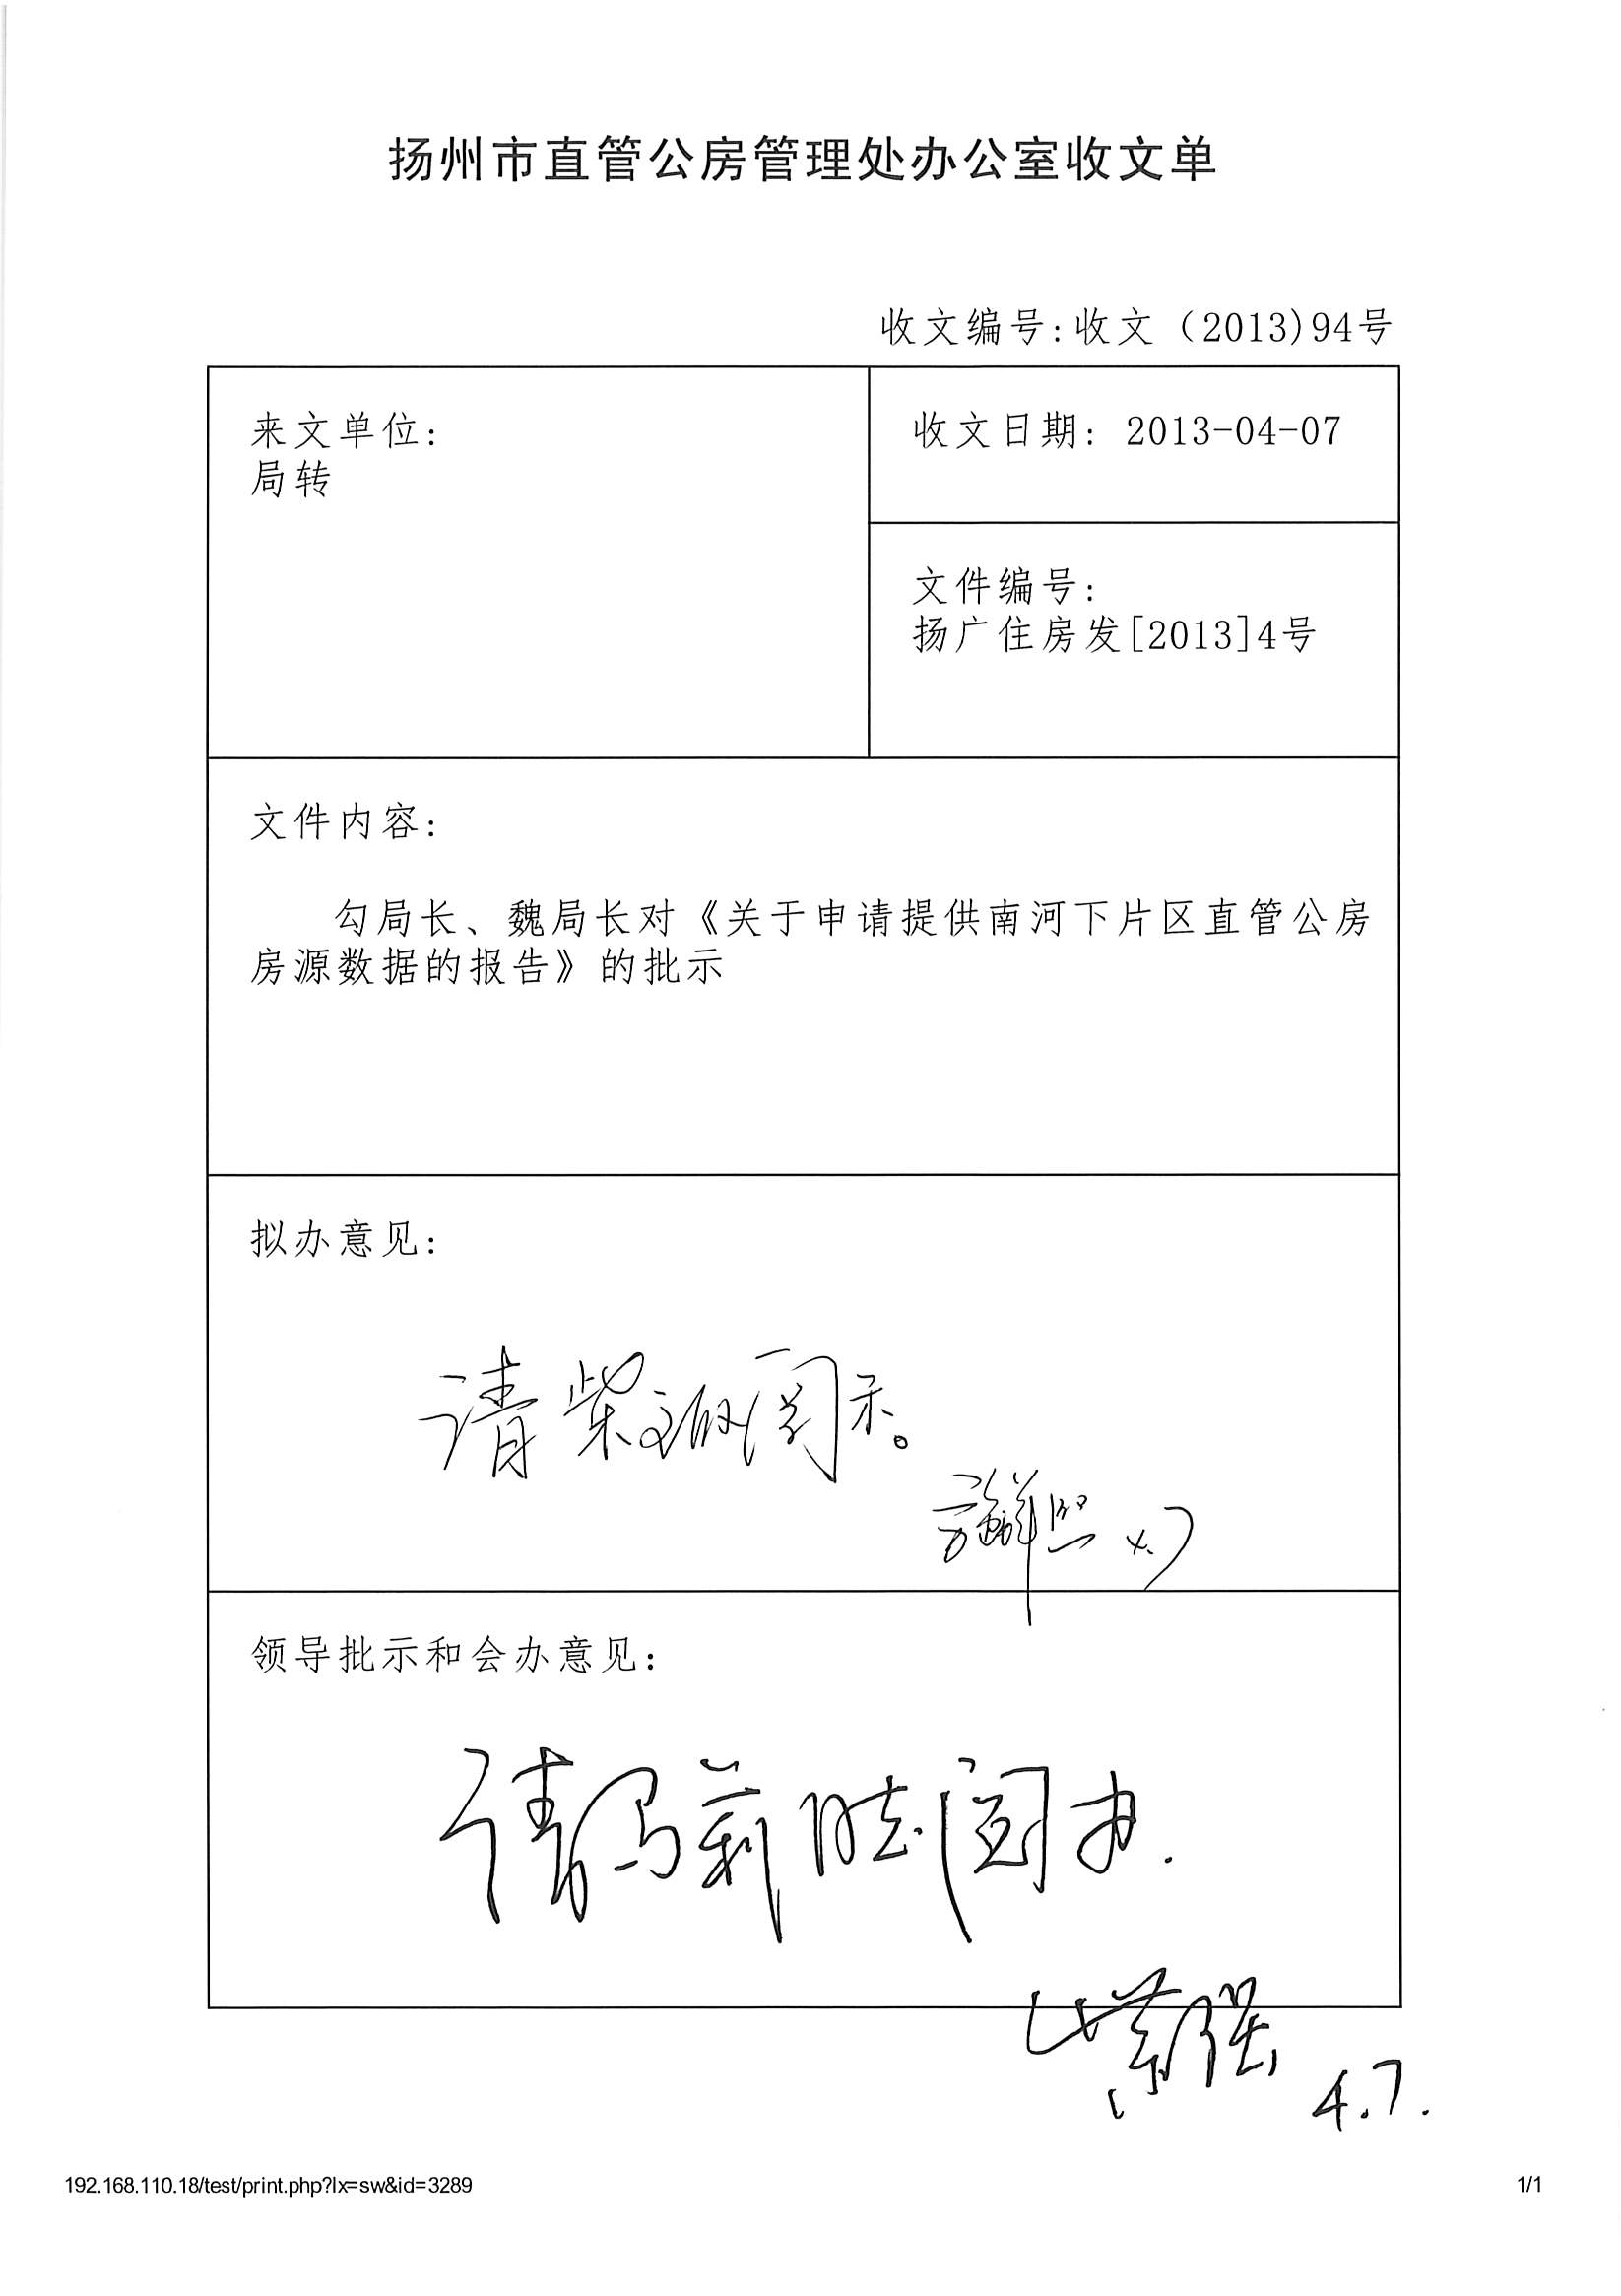 扬州市直管公房管理处办公室收文单
收文编号:收文（2013)94号
来文单位:
局转
收文日期: 2013-04-07
文件编号:
扬广住房发[2013]4号
文件内容:
勾局长、魏局长对《关于申请提供南河下片区直管公房
房源数据的报告》的批示
拟办意见:
请柴主任阅示。
4.7
领导批示和会办意见:
请冯莉 阅办.
柴强
4.7.
192.168.110.18/test/print.php?lx=sw&id=3289
1/1